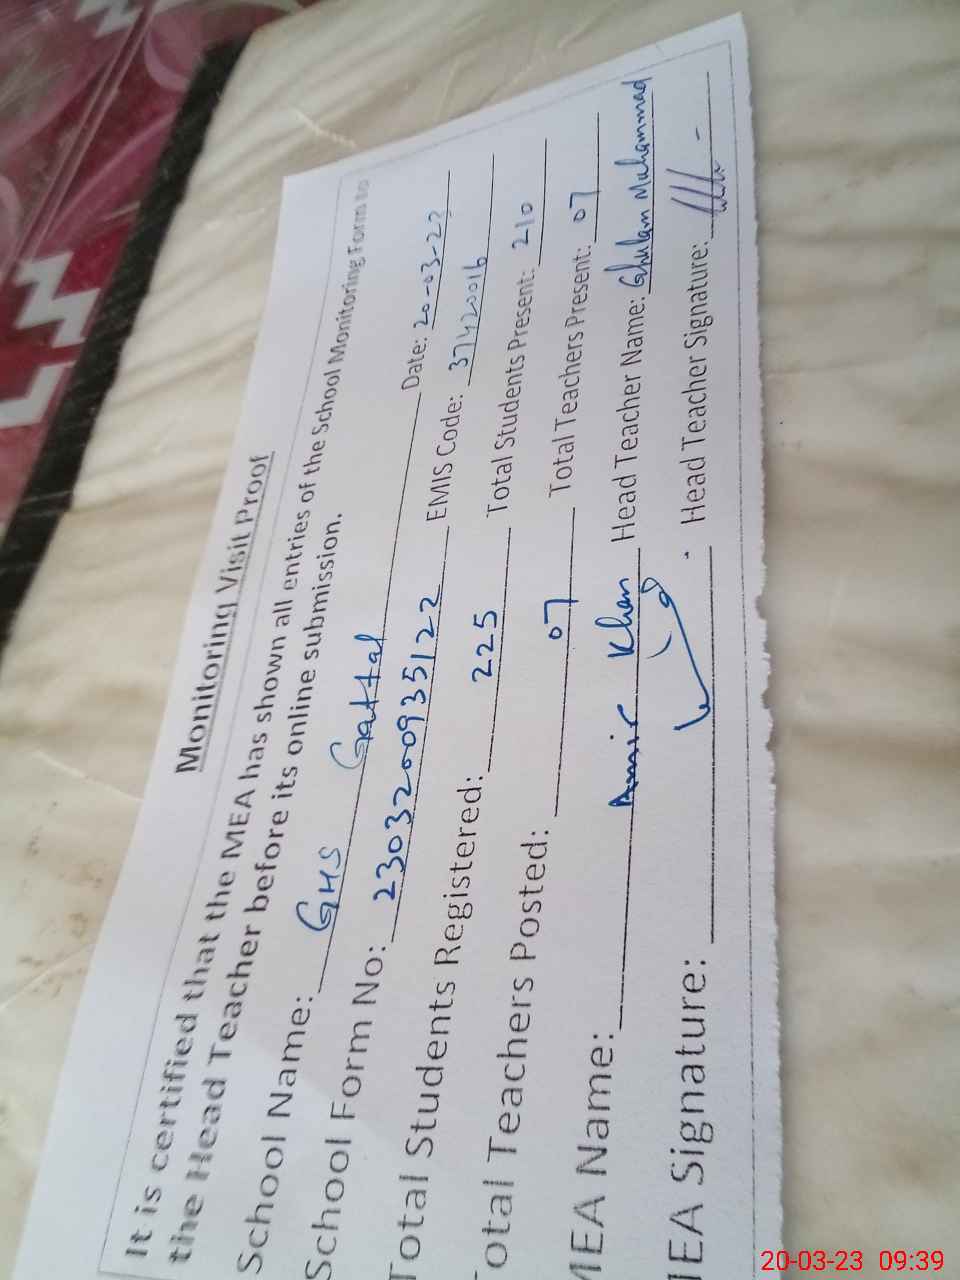 Monitoring Visit Proof
It is certified that the MEA has shown all entries of the School Monitoring Form to
the Head Teacher before its online submission.
School Name: GHS Gattal Date: 20-03-23
School Form No: 2303200935122 EMIS Code: 37420016
Total Students Registered: 225 Total Students Present: 210
Total Teachers Posted: 07 Total Teachers Present: 07
MEA Name: Amir Khan Head Teacher Name: Ghulam Muhammad
MEA Signature: Head Teacher Signature:
20-03-23 09:39